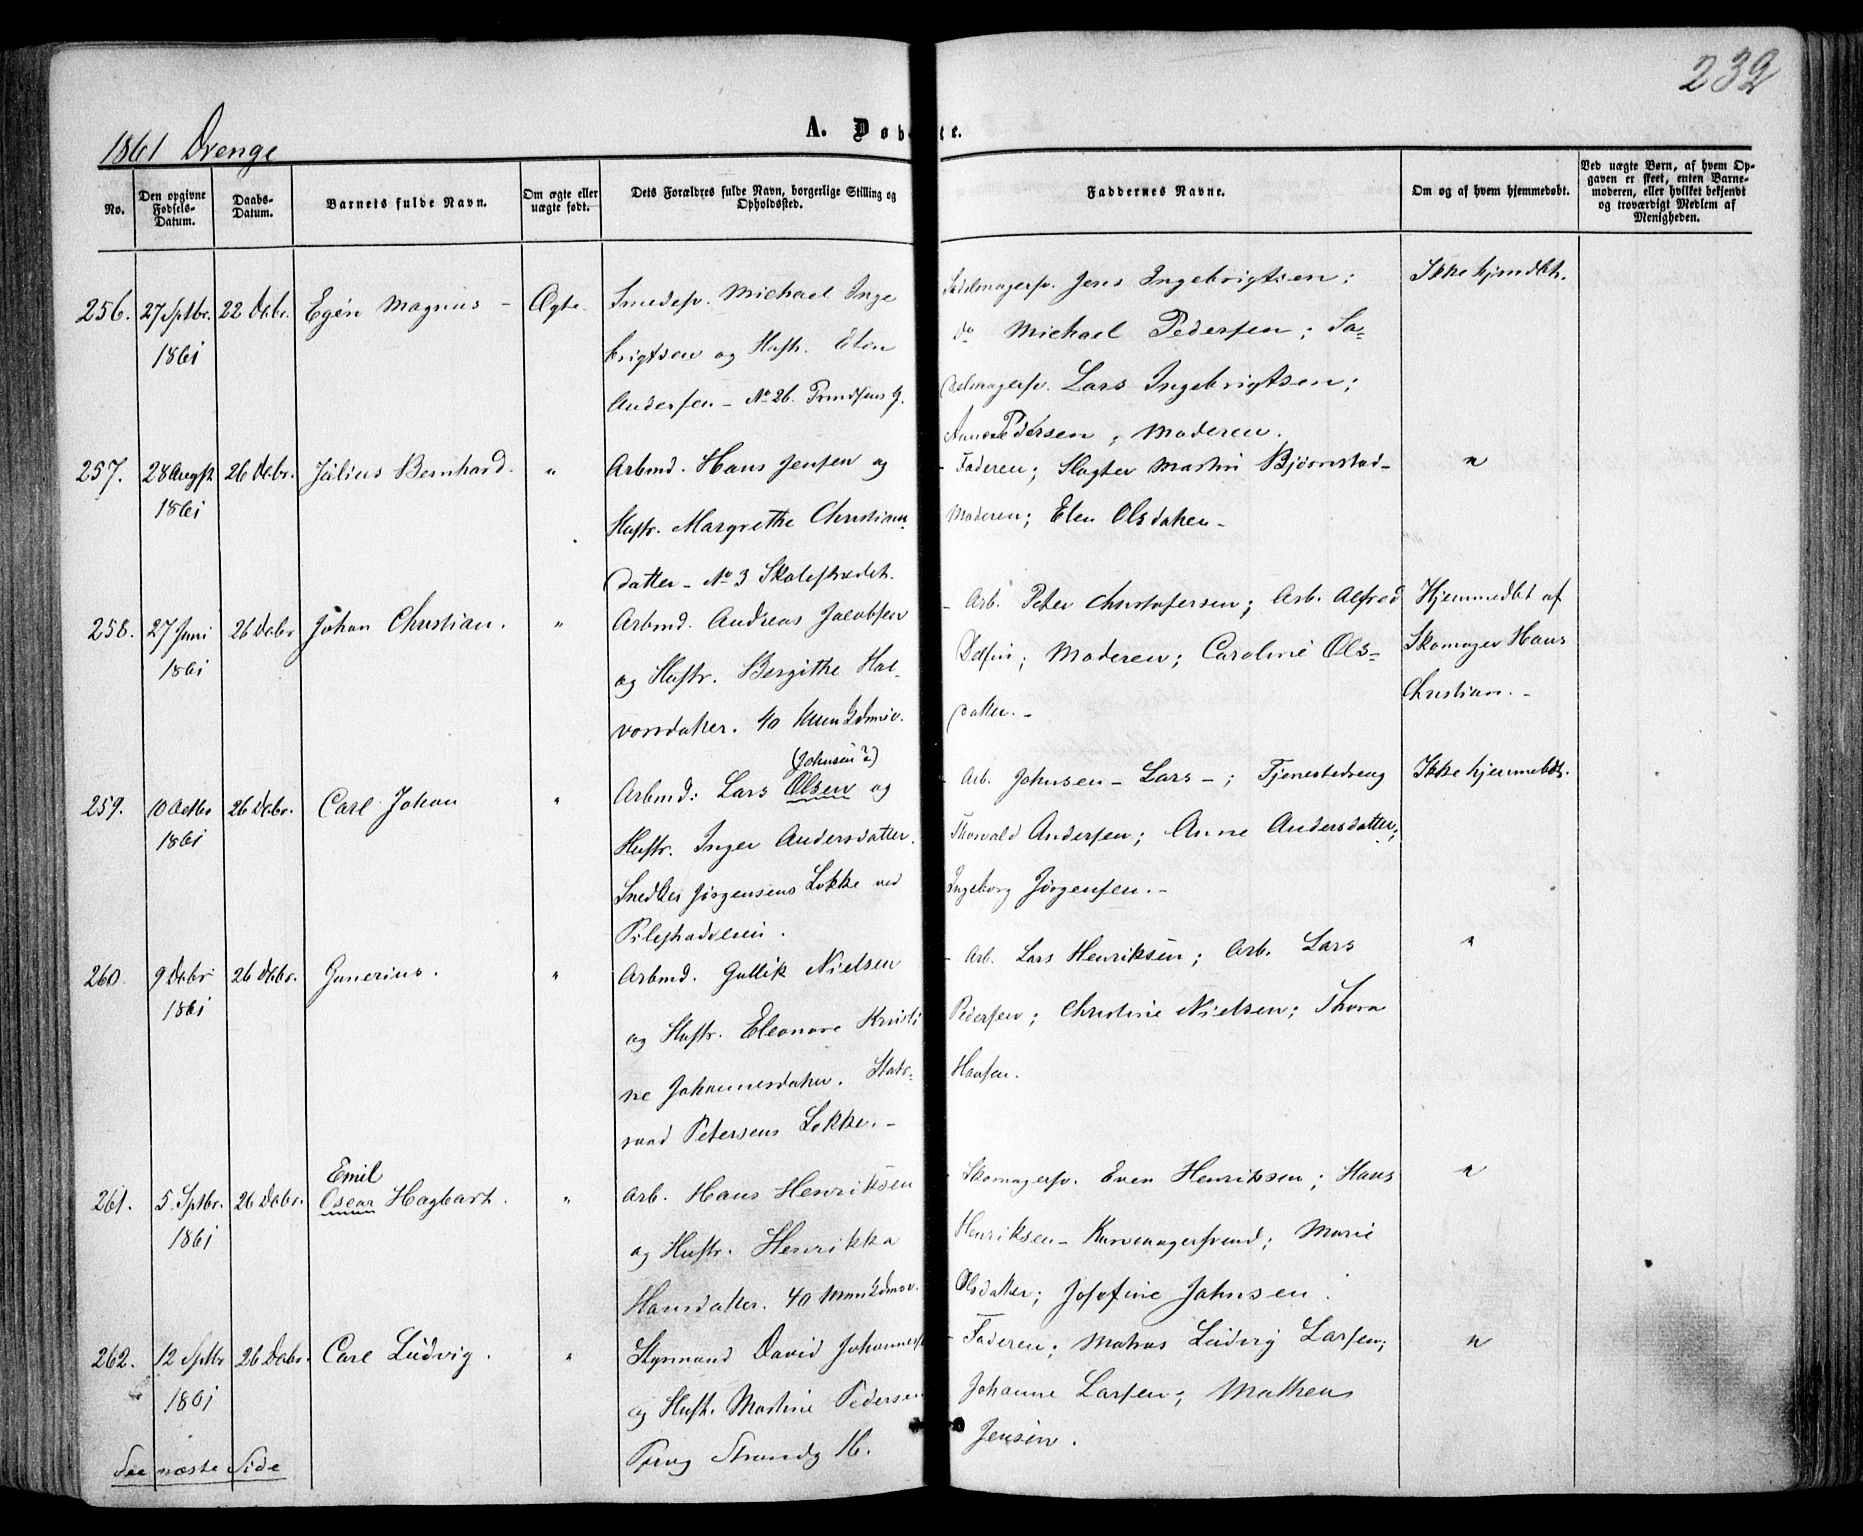 232
1861 Drenge
A. Døbte.
No.
Den opgivne Fødsels-Datum.
Daabs-Datum.
Barnets fulde Navn.
Om ægte eller uægte født.
Dets Forældres fulde Navn, borgerlige Stilling og Opholdssted.
Faddernes Navne.
Om og af hvem hjemmedøbt.
Ved uægte Børn, af hvem Opgaven er skeet, enten Barnemoderen, eller hvilket bekjendt og troværdigt Medlem af Menigheden.
256. 27 Sptbr. 1861 22 Debr. Egen Magnus - Ægte
Smedesv. Michael Inge
brigtsen og Hustr. Elen
Andersen - No 26
Sadelmagersv. Jens Ingebrigtsen;
do Michael Pedersen; Sa-
delmagersv. Lars Ingebrigtsen;
Pedersen, Moderen.
Ikke hjmdbt.
257. 28 Augst 1861 26 Debr. Julius Bernhard. "
Arbmd. Hans Jensen og
Hustr. Margrethe Christians
datter - No 3 Skolestrædet.
- Faderen; Slagter Martin Bjørnstad -
Moderen; Elen Olsdatter -
"
258. 27 Juni 1861 26 Debr Johan Christian. "
Arbmd. Andreas Jacobsen
og Hustr. Bergithe Hal-
vorsdatter. 40 Munkdmsv.
- Arb. Peter Christofersen; Arb. Alfred
Delfin; Moderen; Caroline Ols-
datter. -
Hjemmedbt af
Skomager Hans
Christian. -
259. 10 Octbr 1861 26 Debr. Carl Johan "
(Johnsen?)
Arbmd: Lars Olsen og
Hustr. Inger Andersdatter.
Snedker Jørgensens Løkke ved
Pilestrædveien.
- Arb. Johnsen - Lars -; Tjenestedreng
Thorvald Andersen; Anne Andersdatter;
Ingeborg Jørgensen. -
Ikke hjemmebdt.
260 9 Debr 1861 26 Debr. Gunerius. "
Arbmd. Gullik Nielsen
og Hustr. Eleonore Kristi
ne Johannesdatter. Stats-
raad Petersens Løkke. -
- Arb. Lars Henriksen; Arb. Lars
Pedersen; Christine Nielsen; Thora
Hansen.
"
261. 5. Sptbr. 1861 26 Debr. Emil
Oscar Hagbart. "
Arb. Hans Henriksen
og Hustr. Henrikka
Hansdatter. 40 Munkdmsv.
- Skomagersv. Even Henriksen; Hans
Henriksen - Kurvmagersvend; Marie
Olsdatter; Josefine Johnsen.
"
262. 12 Sptbr 1861 26 Debr. Carl Ludvig. "
Styrmand David Johannes
og Hustr. Martine Pedersen
Strandg 16.
- Faderen; Ludvig Larsen;
Johanne Larsen; Mathea
Jensen.
"
See næste Side